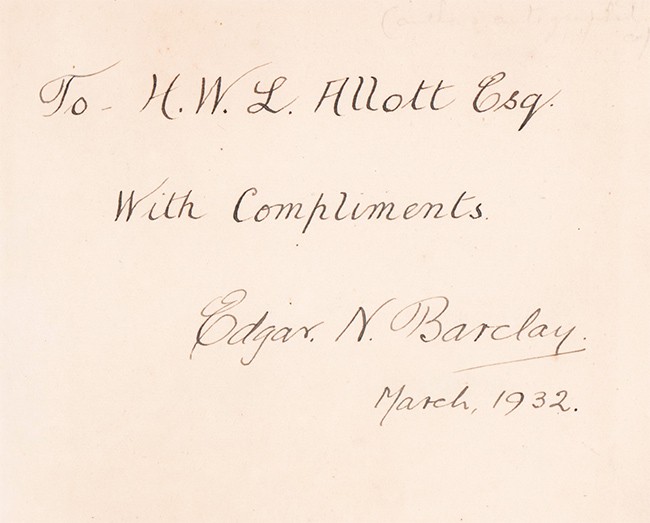 To - H. W. L. Allott Esq.
With Compliments.
Edgar. N. Barclay.
March, 1932.